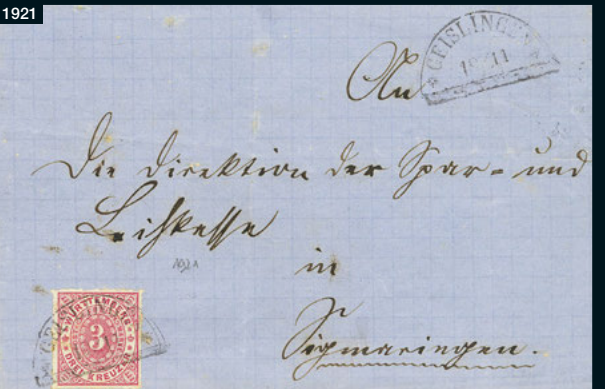 1921
GEISLINGEN
An
Die Direktion der Spar- und
Leihkasse
in
1921
Sigmaringen.
WÜRTTEMBERG
3
DREI KREUZER